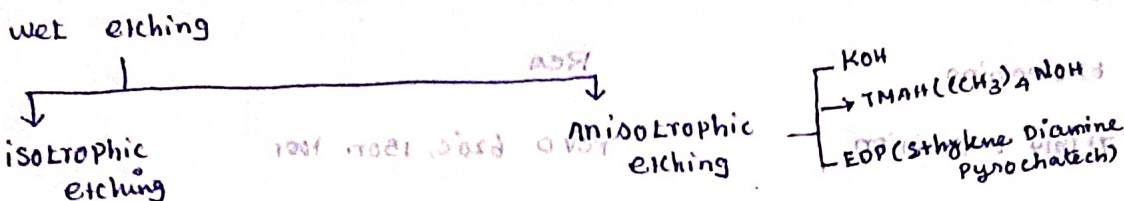 wet etching
isotrophic
etching
Anisotrophic
etching
KOH
TMAH((CH3)4 NOH
EDP(Ethylene Diamine
Pyrochatech)